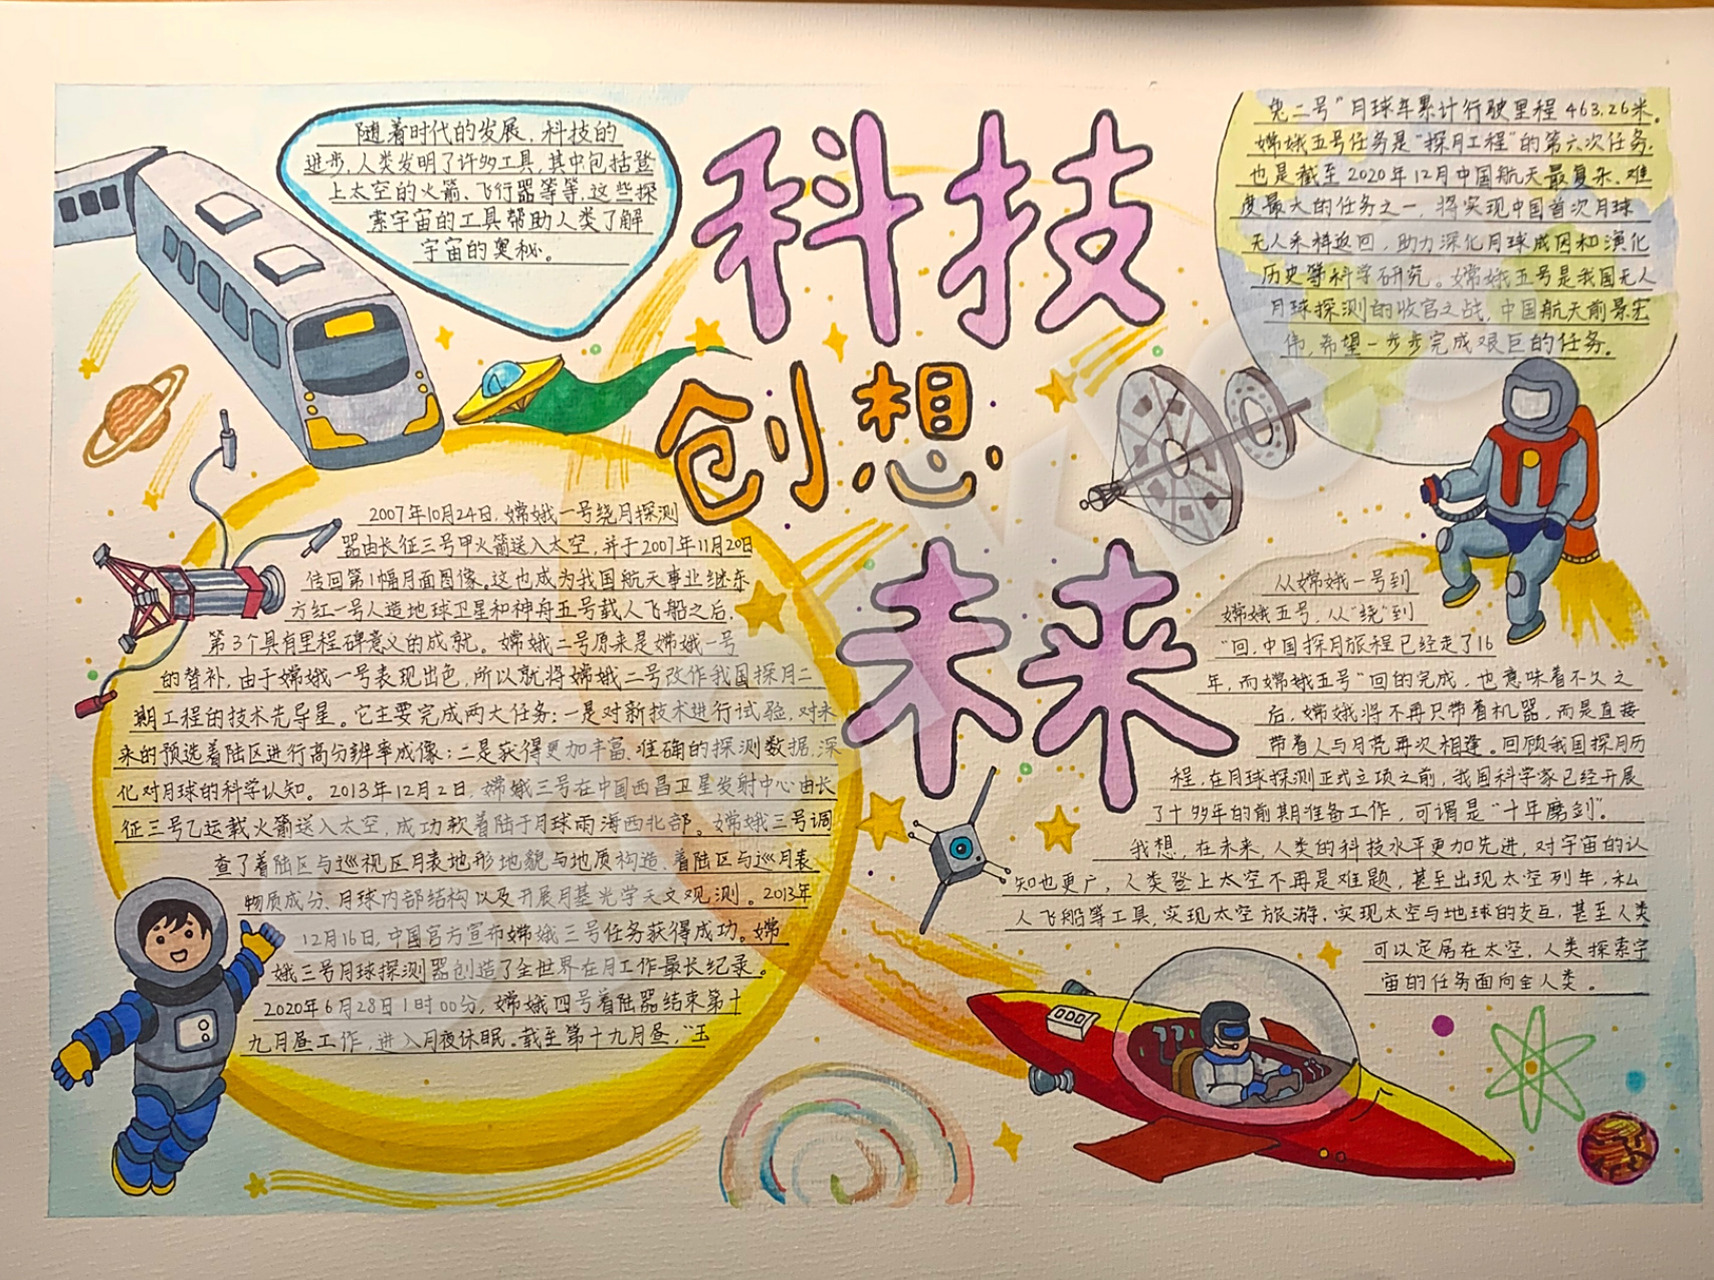 科技
创想
未来
随着时代的发展，科技的
进步，人类发明了许多工具，其中包括登
上太空的火箭、飞行器等等，这些探
索宇宙的工具帮助人类了解
宇宙的奥秘。
2007年10月24日，嫦娥一号绕月探测
器由长征三号甲火箭送入太空，并于2007年11月20日
传回第1幅月面图像。这也成为我国航天事业继东
方红一号人造地球卫星和神舟五号载人飞船之后，
第3个具有里程碑意义的成就。嫦娥二号原来是嫦娥一号
的替补，由于嫦娥一号表现出色，所以就将嫦娥二号改作我国探月二
期工程的技术先导星。它主要完成两大任务：一是对新技术进行试验，对未
来的预选着陆区进行高分辨率成像；二是获得更加丰富、准确的探测数据，深
化对月球的科学认知。2013年12月2日，嫦娥三号在中国西昌卫星发射中心由长
征三号乙运载火箭送入太空，成功软着陆于月球雨海西北部。嫦娥三号调
查了着陆区与巡视区月表地形地貌与地质构造、着陆区与巡月表
物质成分、月球内部结构以及开展月基光学天文观测。2013年
12月16日，中国官方宣布嫦娥三号任务获得成功。嫦
娥三号月球探测器创造了全世界在月工作最长纪录。
2020年6月28日1时00分，嫦娥四号着陆器结束第十
九月昼工作，进入月夜休眠。截至第十九月昼，“玉
兔二号”月球车累计行驶里程463.26米。
嫦娥五号任务是“探月工程”的第六次任务，
也是截至2020年12月中国航天最复杂、难
度最大的任务之一，将实现中国首次月球
无人采样返回，助力深化月球成因和演化
历史等科学研究。嫦娥五号是我国无人
月球探测的收官之战，中国航天前景宏
伟，希望一步步完成艰巨的任务。
从嫦娥一号到
嫦娥五号，从“绕”到
“回，中国探月旅程已经走了16
年，而嫦娥五号”回的完成，也意味着不久之
后，嫦娥将不再只带着机器，而是直接
带着人与月亮再次相逢。回顾我国探月历
程，在月球探测正式立项之前，我国科学家已经开展
了十多年的前期准备工作，可谓是“十年磨剑”。
我想，在未来，人类的科技水平更加先进，对宇宙的认
知也更广，人类登上太空不再是难题，甚至出现太空列车，私
人飞船等工具，实现太空旅游，实现太空与地球的交互，甚至人类
可以定居在太空，人类探索宇
宙的任务面向全人类。